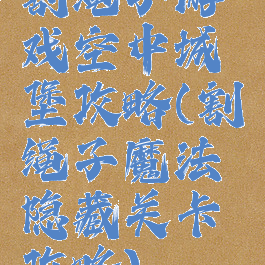 割绳子游
戏空中城
堡攻略(割
绳子魔法
隐藏关卡
攻略)